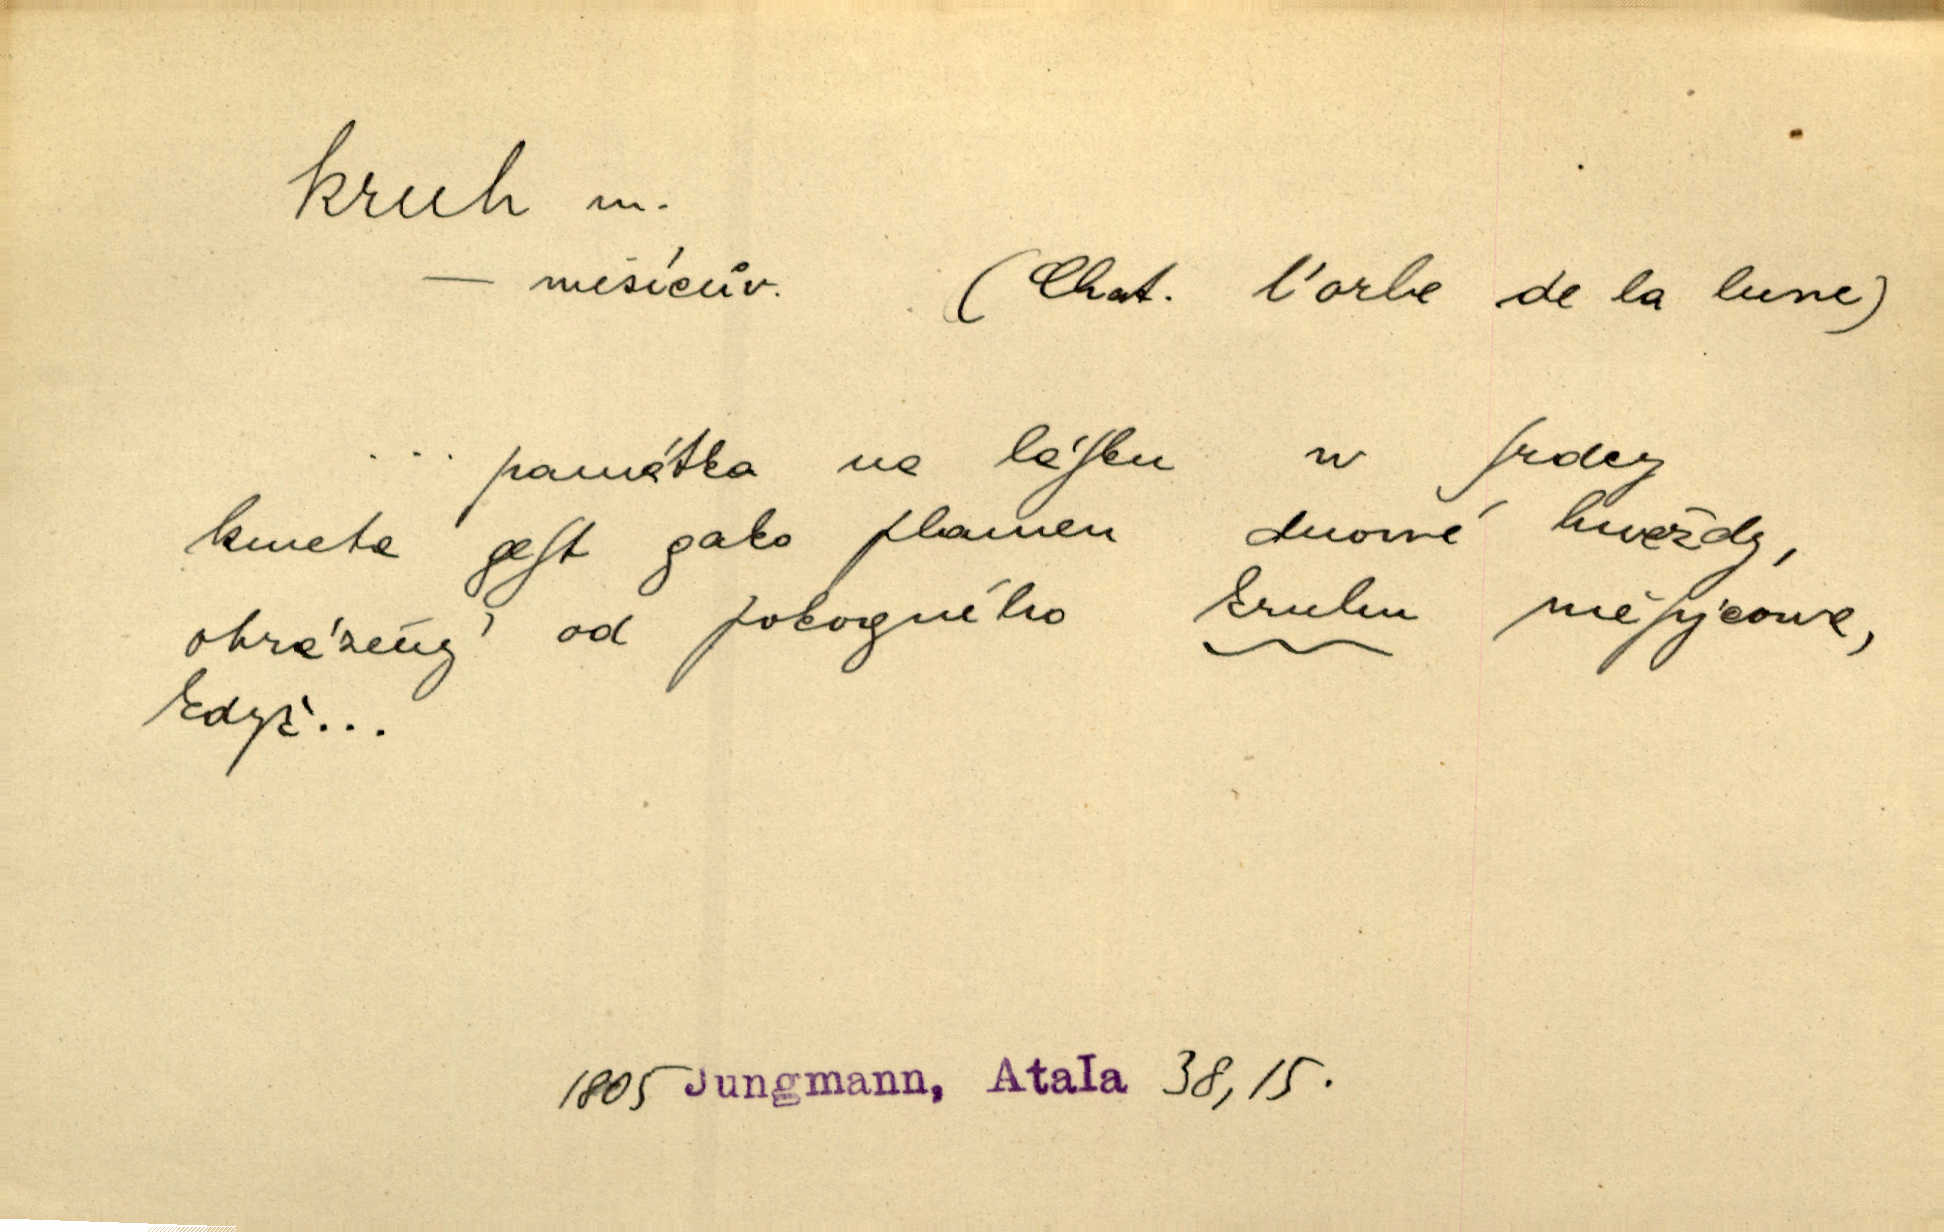 kruh m.
— měsícův. (Chat. l'orbe de la lune)
... památka na láſku w ſrdcy
kmeta geſt gako plamen dnowé hwězdy,
obrázený od pokogného kruhu měſýcowa,
když...
1805 Jungmann, Atala 38,15.